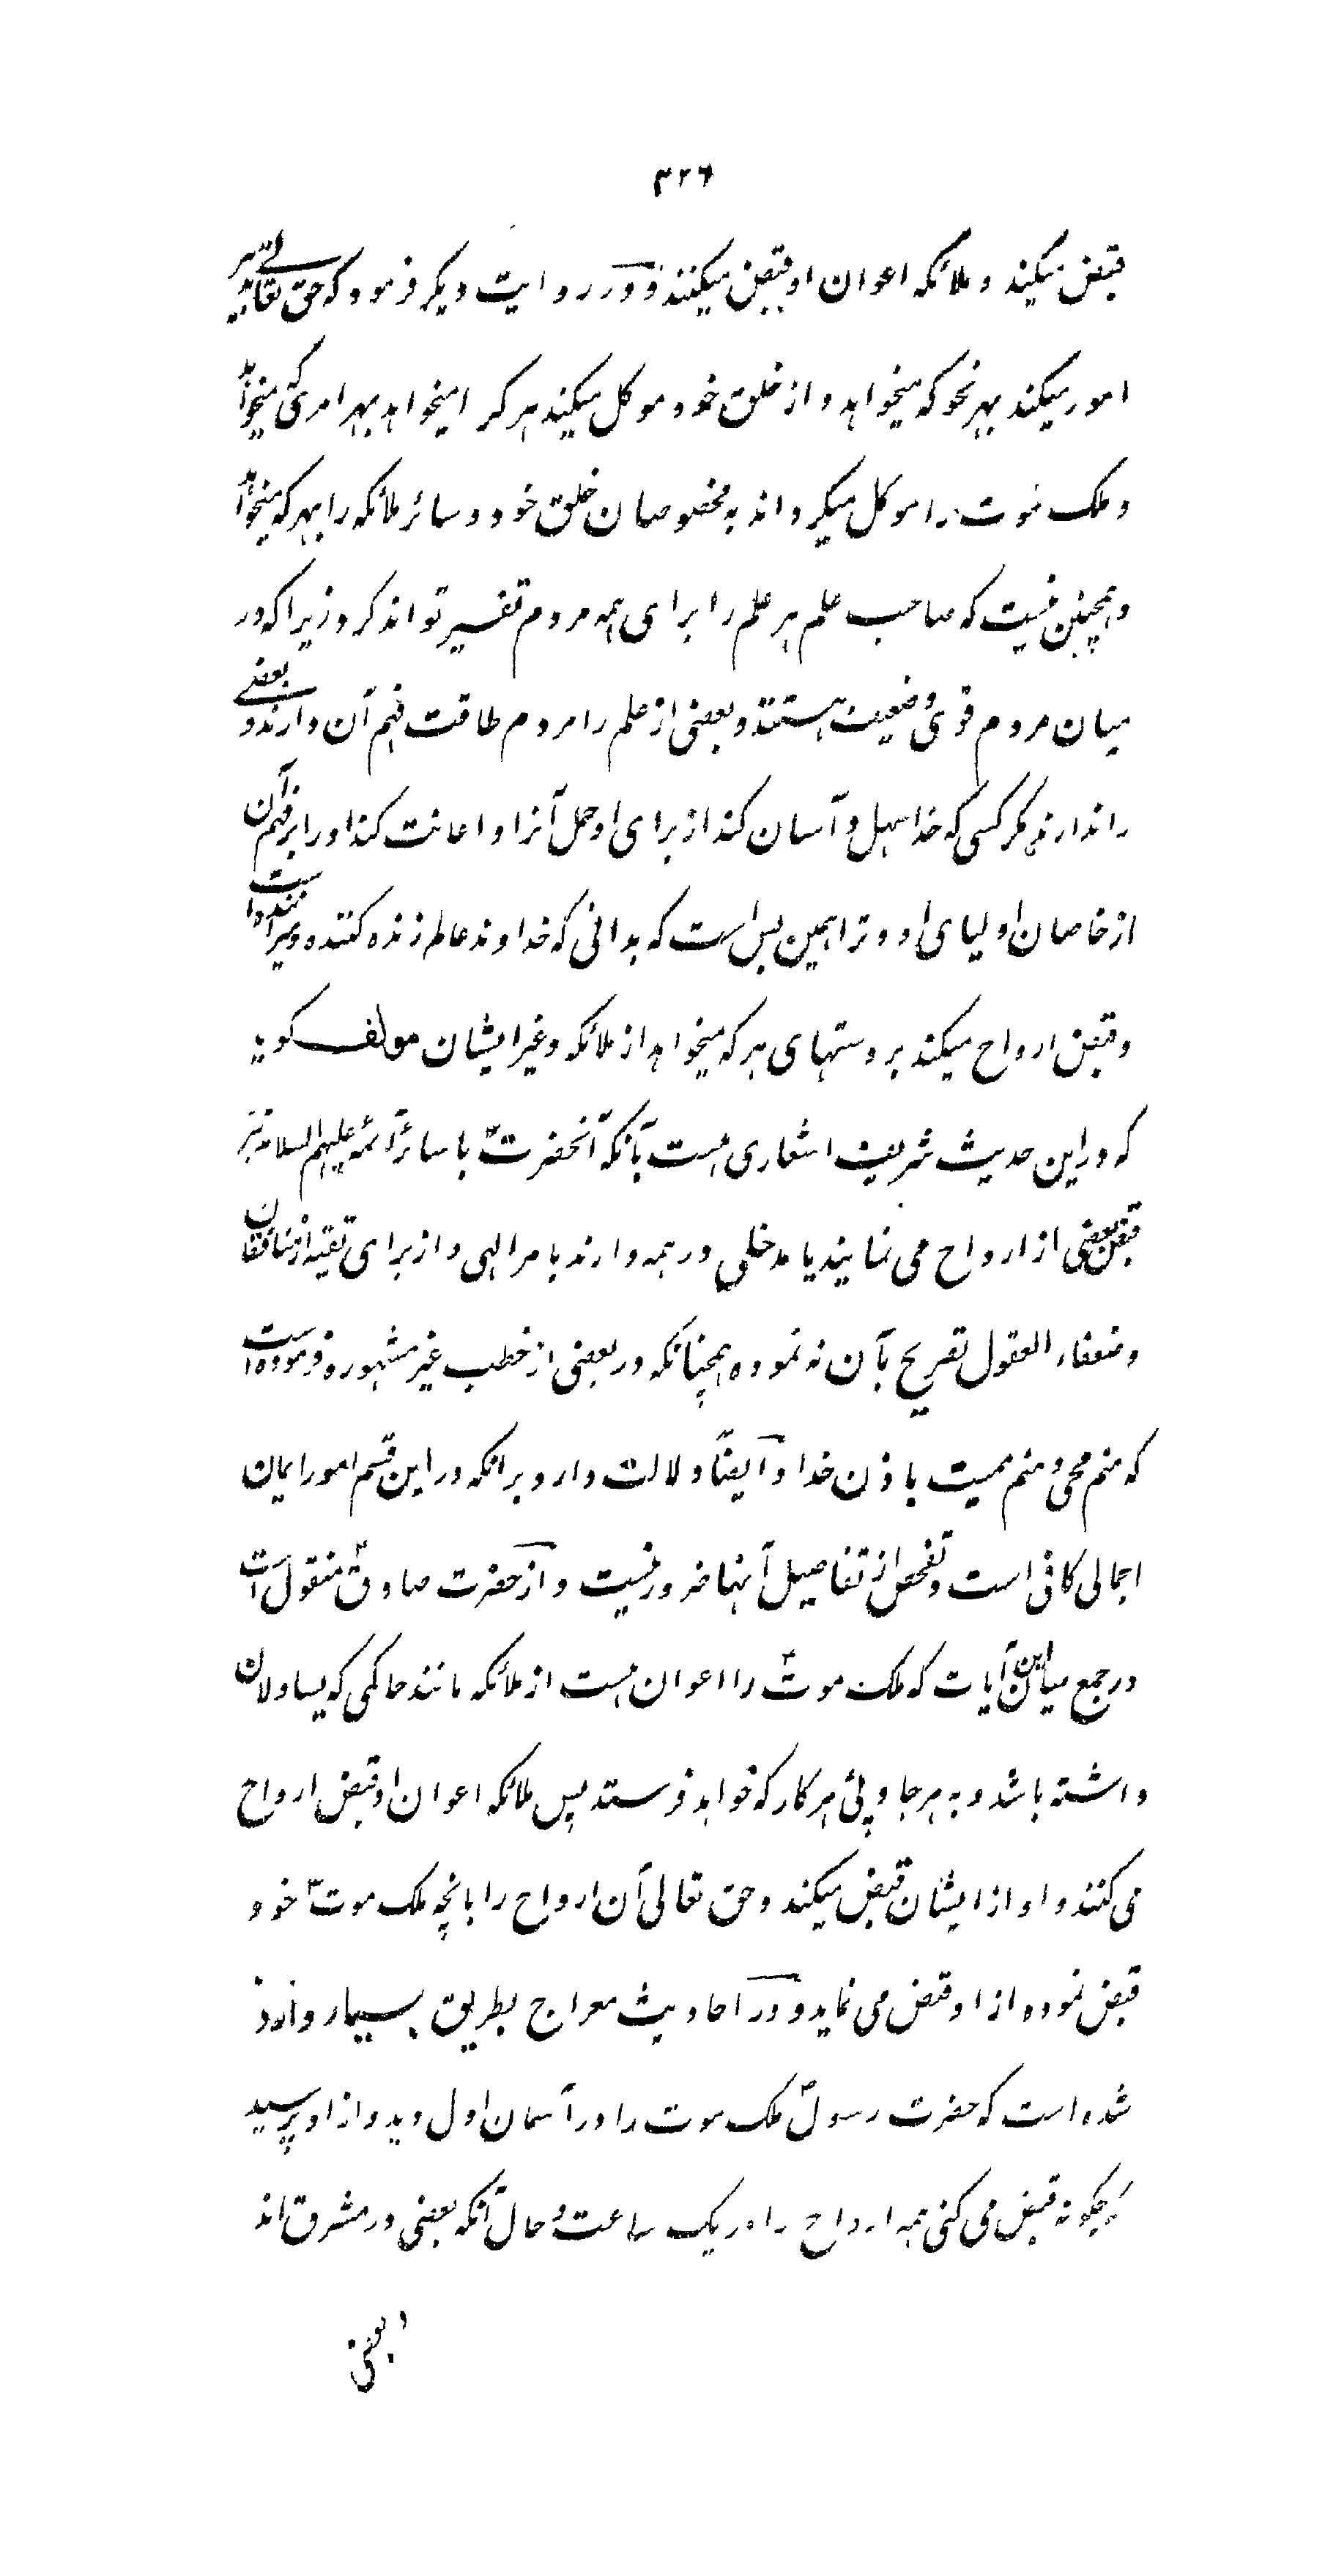 ۳۲۶
قبض میکند و ملائکه اعوان او قبض میکنند و در روایت دیگر فرمود که حق تعالی تدبیر
امور میکند بهر نحو که میخواهد و از خلق خود موکل میکند هر کرا میخواهد بهر امری که میخواهد
و ملک موت را موکل میگرداند به مخصوصان خلق خود و سائر ملائکه را بهر که میخواهد
و همچنین نیست که صاحب علم هر علم را برای همه مردم تفسیر تواند کرد زیرا که در
میان مردم قوی و ضعیف هستند و بعضی از علم را مردم طاقت فهم آن دارند و بعضے
را ندارند مگر کسی که خدا سهل و آسان کند از برای او حمل آنرا و اعانت کند او را بر فهم آن
از خاصان اولیای او و ترا همین بس است که بدانی که خداوند عالم زنده کننده و میراننده است
و قبض ارواح میکند بر دستهای هر که میخواهد از ملائکه و غیر ایشان مولف گوید
که در این حدیث شریف اشعاری هست بآنکه آنحضرتؑ با سائر ائمه علیهم السلام نیز
قبض بعضی از ارواح می نمایند یا مدخلی در همه دارند بامر الهی و از برای تقیه از منافقان
و ضعفاء العقول تصریح بآن نه نموده همچنانکه در بعضی از خطب غیر مشهوره فرموده است
که منم محی و منم ممیت باذن خدا و ایضاً دلالت دارد برانکه در این قسم امور ایمان
اجمالی کافی است و تفحص از تفاصیل آنها ضرور نیست و از حضرت صادقؑ منقول است
در جمع میان این آیات که ملک موتؑ را اعوان هست از ملائکه مانند حاکمی که یساولان
داشته باشد و به هر جا و پئ هر کار که خواهد فرستد پس ملائکه اعوان او قبض ارواح
می کنند و او از ایشان قبض میکند و حق تعالی آن ارواح را بانچه ملک موتؑ خود
قبض نموده از او قبض می نماید و در احادیث معراج بطریق بسیار وارد
شده است که حضرت رسولؐ ملک موت را در آسمان اول دید و از او پرسید
که چگونه قبض می کنی همه ارواح را در یک ساعت و حال آنکه بعضی در مشرق اند
و بعضی